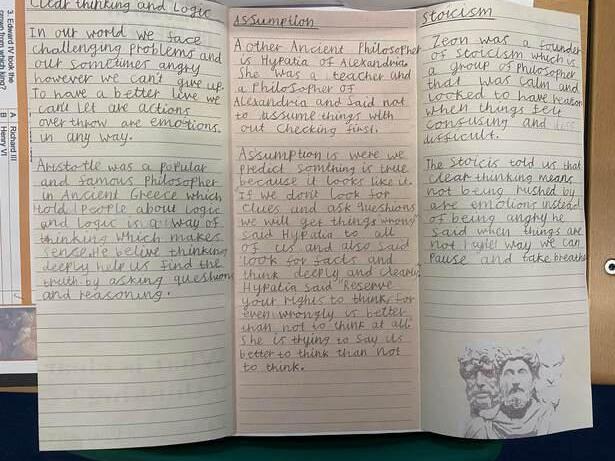 3. Edward IV took the
crown from which king?
A Richard III
B Henry VI
Clear thinking and Logic
In our world we face
challenging problems and
our somtimes angry
however we can't give up.
To have a better live we
can't let are actions
over throw are emotions
in any way.
Aristotle was a popular
and famous Philosopher
in Ancient Greece which
told People about Logic
and Logic is a way of
thinking which makes
sense. He belive thinking
deeply help us find the
truth by asking queshions
and reasoning.
Assumption
A other Ancient Philosopher
is Hypatia of Alexandria.
She was a teacher and
a Philosopher of
Alexandria and said not
to assume things with
out checking first.
Assumption is were we
predict somthing is true
because it looks like it.
If we don't look for
clues and ask queshions
we will get things wrong"
said Hypatia to all
of us and also said
"look for facts and
think deeply and clearly"
Hypatia said "Reserve
your rights to think, for
even wrongly is better
than not to think at all."
She is trying to say its
better to think than not
to think.
Stoicism
Zeon was a founder
of Stoicism which is
a group of Philosopher
that was calm and
looked to have reason
when things felt
confusing and
difficult.
The Stoicis told us that
clear thinking means
not being rushed by
are emotions instead
of being angry he
said when things are
not way we can
Pause and take breathe